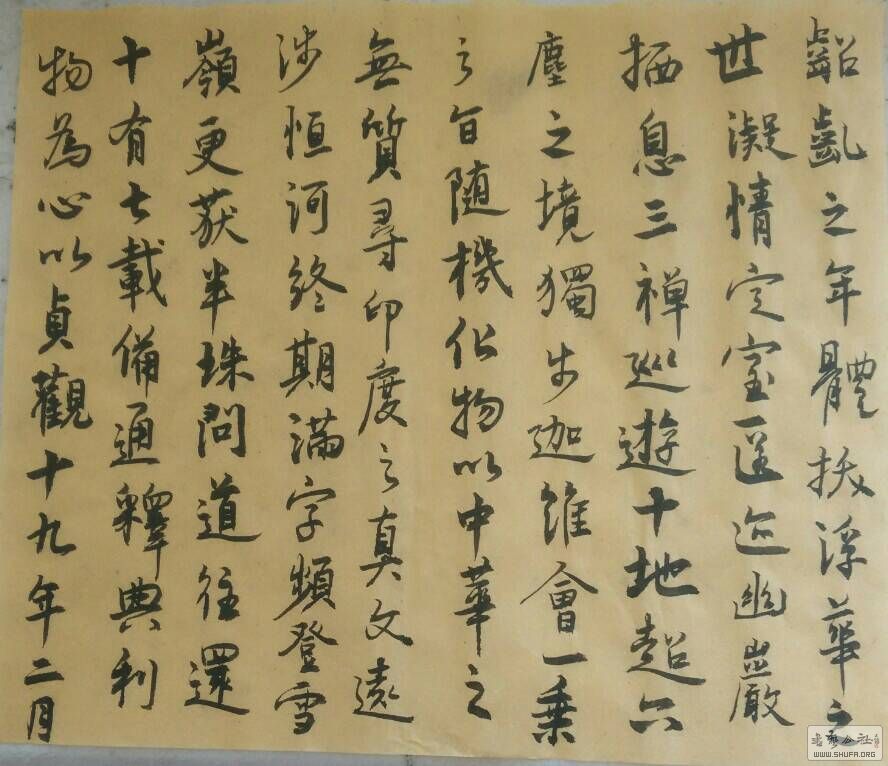 齠齔之年體拔浮華之
世凝情定室匿迹幽巖
栖息三禪巡遊十地超六
塵之境獨步迦維會一乘
之旨随機化物以中華之
無質尋印度之真文遠
涉恒河終期滿字頻登雪
嶺更获半珠問道往還
十有七載備通釋典利
物為心以貞觀十九年二月
書法公社
WWW.SHUFA.ORG